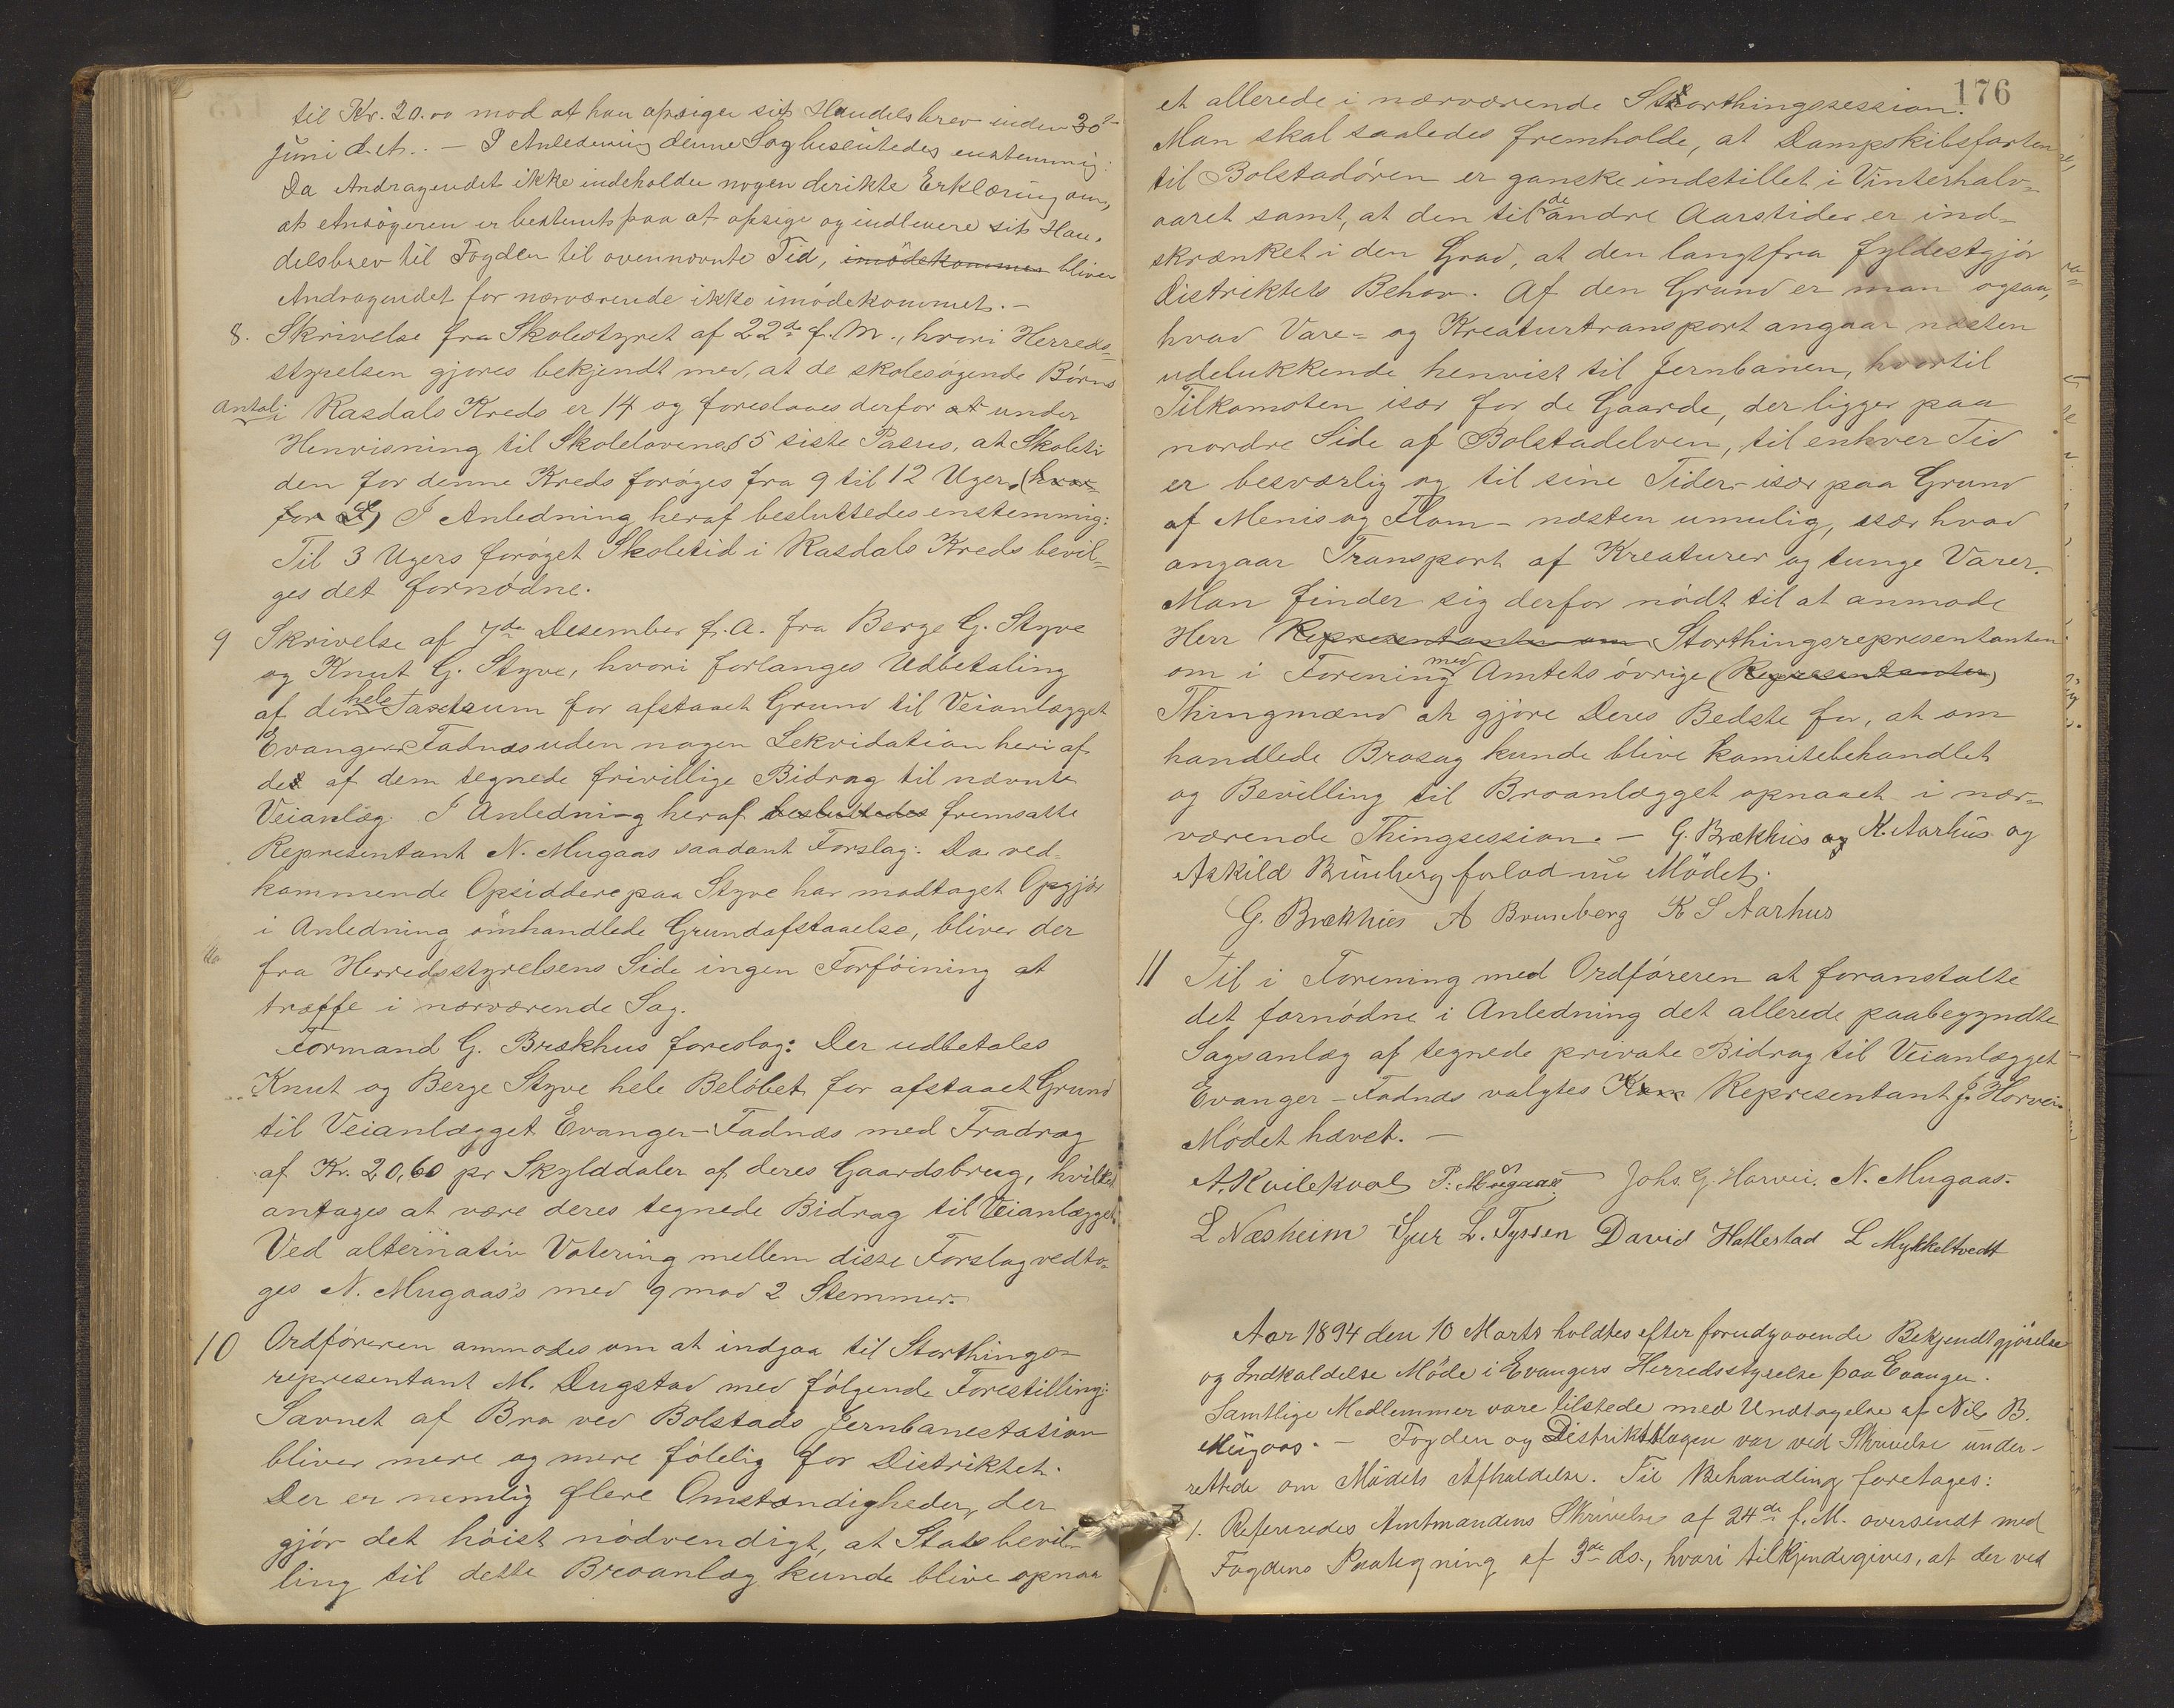 til Kr. 20.00 mod at han opsiger sit Handelsbrev inden 30te
Juni d. A. . — I Anledning denne Sag besluttedes enstemmig:
Da Andragendet ikke indeholder nogen derikte Erklæring om,
at Ansøgeren er bestemt paa at opsige og indlevere sit Han-
delsbrev til Fogden til ovennævnte Tid, imødekommes bliver
Andragendet for nærværende ikke imødekommet. —
8. Skrivelse fra Skolestyret af 22de f. M., hvori Herreds-
styrelsen gjøres bekjendt med, at de skolesøgende Børns
Antal i Rasdals Kreds er 14 og foreslaaes derfor at under
Henvisning til Skolelovens § 5 siste Passus, at Skoleti
den for denne Kreds forøges fra 9 til 12 Uger. (hvor-
for S) I Anledning heraf besluttedes enstemmig:
Til 3 Ugers forøget Skoletid i Rasdals Kreds bevil-
ges det fornødne.
9 Skrivelse af 7de Desember f. A. fra Berge G. Styve
og Knut G. Styve, hvori forlanges Udbetaling
af den hele Taxtsum for afstaaet Grund til Veianlægget
Evanger-Fadnæs uden nogen Lekvidation heri af
det af dem tegnede frivillige Bidrag til nævnte
Veianlæg. I Anledning heraf besluttedes fremsatte
Representant N. Mugaas saadant Forslag: Da ved-
kommende Opsiddere paa Styve har modtaget Opgjør
i Anledning omhandlede Grundafstaaelse, bliver der
fra Herredsstyrelsens Side ingen Forføining at
træffe i nærværende Sag.
Formand G. Brækhus foreslog: Der udbetales
Knut og Berge Styve hele Beløbet for afstaaet Grund
til Veianlægget Evanger-Fadnæs med Fradrag
af Kr. 20,60 pr Skylddaler af deres Gaardsbrug, hvilket
antages at være deres tegnede Bidrag til Veianlægget.
Ved alternativ Votering mellem disse Forslag vedto-
ges N. Mugaas's med 9 mod 2 Stemmer.
10 Ordføreren ammodes om at indgaa til Storthings-
representant M. Dugstad med følgende Forestilling:
Savnet af Bro ved Bolstads Jernbanestation
bliver mere og mere følelig for Distriktet.
Der er nemlig flere Omstændigheder, der
gjør det høist nødvendigt, at Statsbevil-
ling til dette Broanlæg kunde blive opnaa
176
et allerede i nærværende Storthingssession.
Man skal saaledes fremholde, at Dampskibsfarten
til Bolstadøren er ganske indstillet i Vinterhalv-
aaret samt, at den til de andre Aarstider er ind-
skrænket i den Grad, at den langtfra fyldestgjør
Distriktets Behov. Af den Grund er man ogsaa,
hvad Vare- og Kreaturtransport angaar næsten
udelukkende henvist til Jernbanen, hvortil
Tilkomsten især for de Gaarde, der ligger paa
nordre Side af Bolstadelven, til enhver Tid
er besværlig og til sine Tider - især paa Grund
af Menis og Flom - næsten umulig, især hvad
angaar Transport af Kreaturer og tunge Varer.
Man finder sig derfor nødt til at anmode
Herr Representanten om Storthingsrepresentanten
om i Forening med Amtets øvrige (Representanter)
Thingmænd at gjøre Deres Bedste for, at om
handlede Brosag kunde blive komitebehandlet
og Bevilling til Broanlægget opnaaet i nær-
værende Thingsession. — G. Brækhus og K. Aarhus og
Askild Brunberg forlod nu Mødet.
G. Brækhus A Brunberg K S Aarhus
11 Til i Forening med Ordføreren at foranstalte
det fornødne i Anledning det allerede paabegyndte
Sagsanlæg af tegnede private Bidrag til Veianlægget
Evanger - Fadnæs valgtes Representant J. Horvei.
Mødet hævet. —
A. Kvilekval P. Mugaas Johs. G. Horvei. N. Mugaas.
L Næsheim Sjur L. Tyssen David Hatlestad L Mykkeltvedt
Aar 1894 den 10 Marts holdtes efter forudgaaende Bekjendtgjørelse
og Indkaldelse Møde i Evangers Herredsstyrelse paa Evanger.
Samtlige Medlemmer vare tilstede med Undtagelse af Nils B.
Mugaas. — Fogden og Distriktslægen var ved Skrivelse under-
rettede om Mødets Afholdelse. Til Behandling foretages:
1. Refereredes Amtmandens Skrivelse af 24de f. M. oversendt med
Fogdens Paategning af 3de ds., hvori tilkjendegives, at der ved